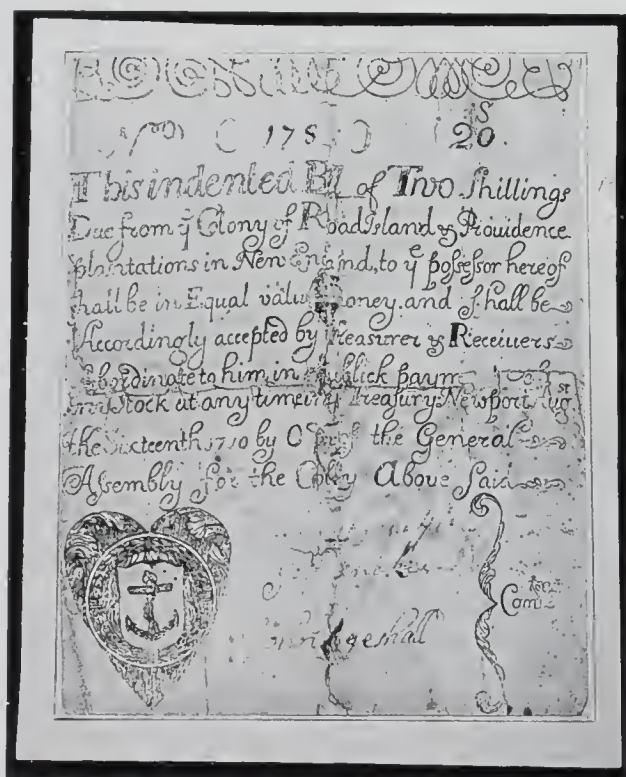 178 20.s
This indented Bil of Two shillings
Due from yͤ Colony of RoadIsland & Prouidence
plantations in New England, to yͤ possessor hereof
shall be in Equal value money. and shall be
Accordingly accepted by Treasurer & Receiuers
Subordinate to him in Publick paym
any Stock at any time in yͤ Treasury. Newport Augst
the Sixteenth 1710 by Order of the General
Assembly for the Colony Above said
Comtee